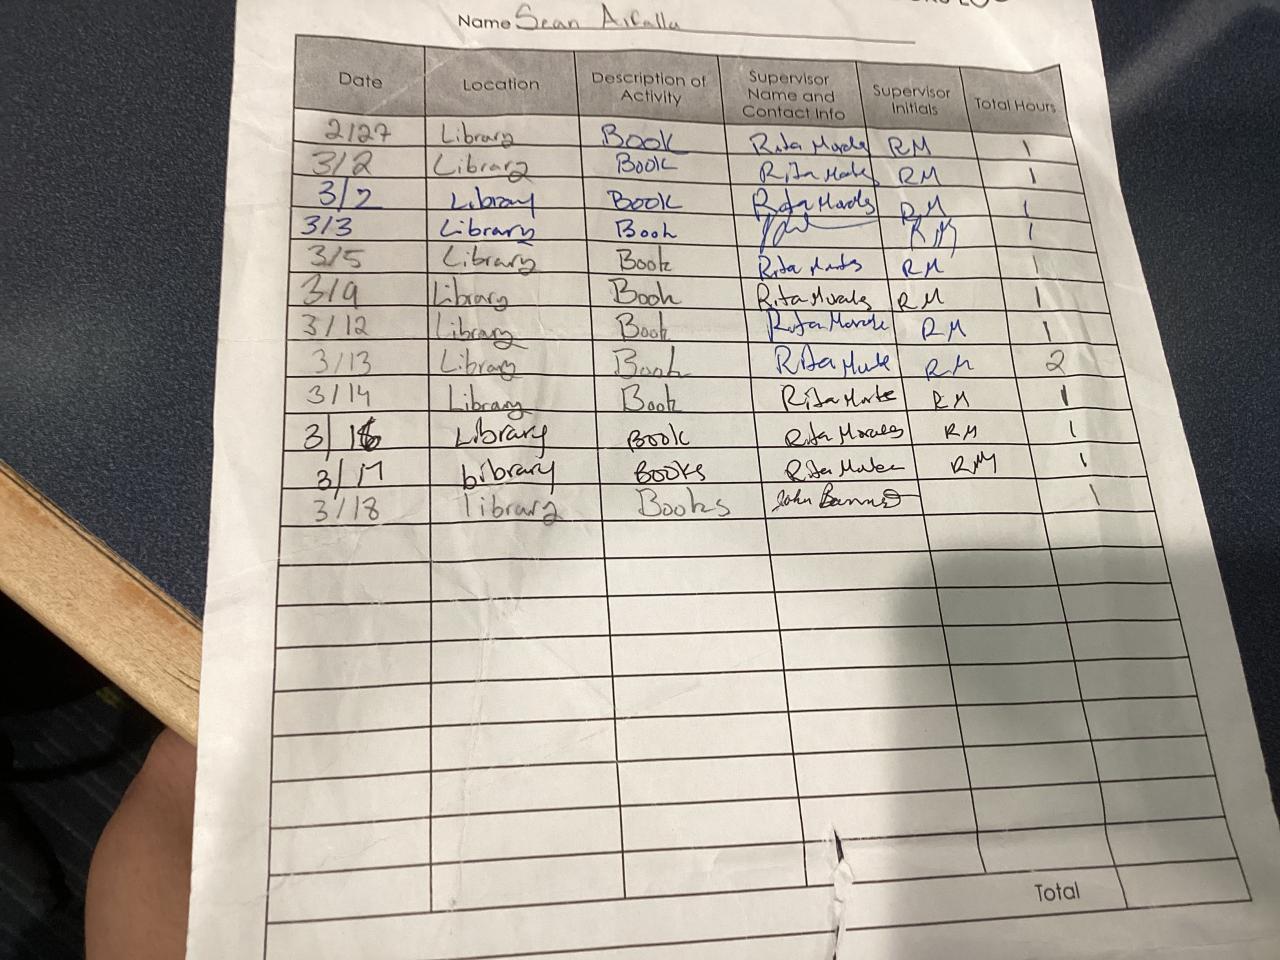 Name Sean
Date Location Description of Activity Supervisor Name and Contact Info Supervisor Initials Total Hours
2/27 Library Book Rita RM 1
3/2 Library Book Rita RM 1
3/2 Library Book Rita Morales RM 1
3/3 Library Book RM 1
3/5 Library Book Rita RM 1
3/9 Library Book Rita Morales RM 1
3/12 Library Book Rita Morale RM 1
3/13 Library Book Rita RM 2
3/14 Library Book Rita RM 1
3/16 Library Book Rita Morales RM 1
3/17 Library Books Rita RM 1
3/18 Library Books John 1
Total